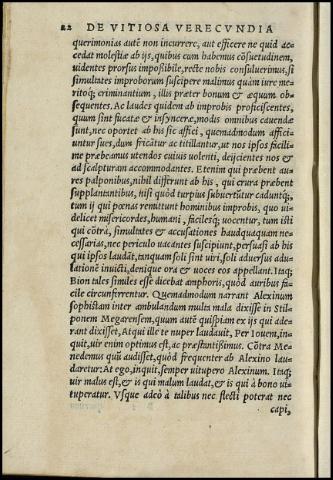 22 DE VITIOSA VERECVNDIA
querimonias autē non incurrere, aut efficere ne quid ac⸗
cedat molestiæ ab ijs, quibus cum habemus cōsuetudinem,
uidentes prorsus impoßibile, recte nobis consulucrimus, si
simultates improborum suscipere malimus quàm iure me⸗
ritoq; criminantium, illis præter bonum & æquum ob⸗
sequentes. Ac laudes quidem ab improbis proficiscentes,
quum sint fucatæ & insynceræ, modis omnibus cauendæ
sunt, nec oportet ab his sic affici, quemadmodum affici⸗
untur sues, dum fricātur ac titillantur, ut nos ipsos facili⸗
me præbeamus utendos cuiuis uolenti, deijcientes nos &
ad scalpturam accommodantes. Etenim qui præbent au⸗
res palponibus, nihil differunt ab his, qui crura præbent
supplantantibus, nisi quòd turpius subuertūtur caduntq;,
tum ij qui pœnas remittunt hominibus improbis, quo ui⸗
delicet misericordes, humani, facilesq; uocentur, tum isti
qui cōtrà, simultates & accusationes haudquaquam ne⸗
cessarias, nec periculo uacantes suscipiunt, persuasi ab his
qui ipsos laudāt, tanquam soli sint uiri, soli aduersus adu⸗
lationē inuicti, denique ora & uoces eos appellant. Itaq;
Bion tales similes esse dicebat amphoris, quòd auribus fa⸗
cile circunferrentur. Quemadmodum narrant Alexinum
sophistam inter ambulandum multa mala dixisse in Stil⸗
ponem Megarensem, quum autē quispiam ex ijs qui ade⸗
rant dixisset, Atqui ille te nuper laudauit, Per Iouem, in⸗
quit, uir enim optimus est, ac præstantißimus. Cōtra Me⸗
nedemus quū audisset, quòd frequenter ab Alexino lau⸗
daretur: At ego, inquit, semper uitupero Alexinum. Itaq;
uir malus est, & is qui malum laudat, & is qui à bono ui⸗
tuperatur. Vsque adeò à talibus nec flecti poterat nec
capi,